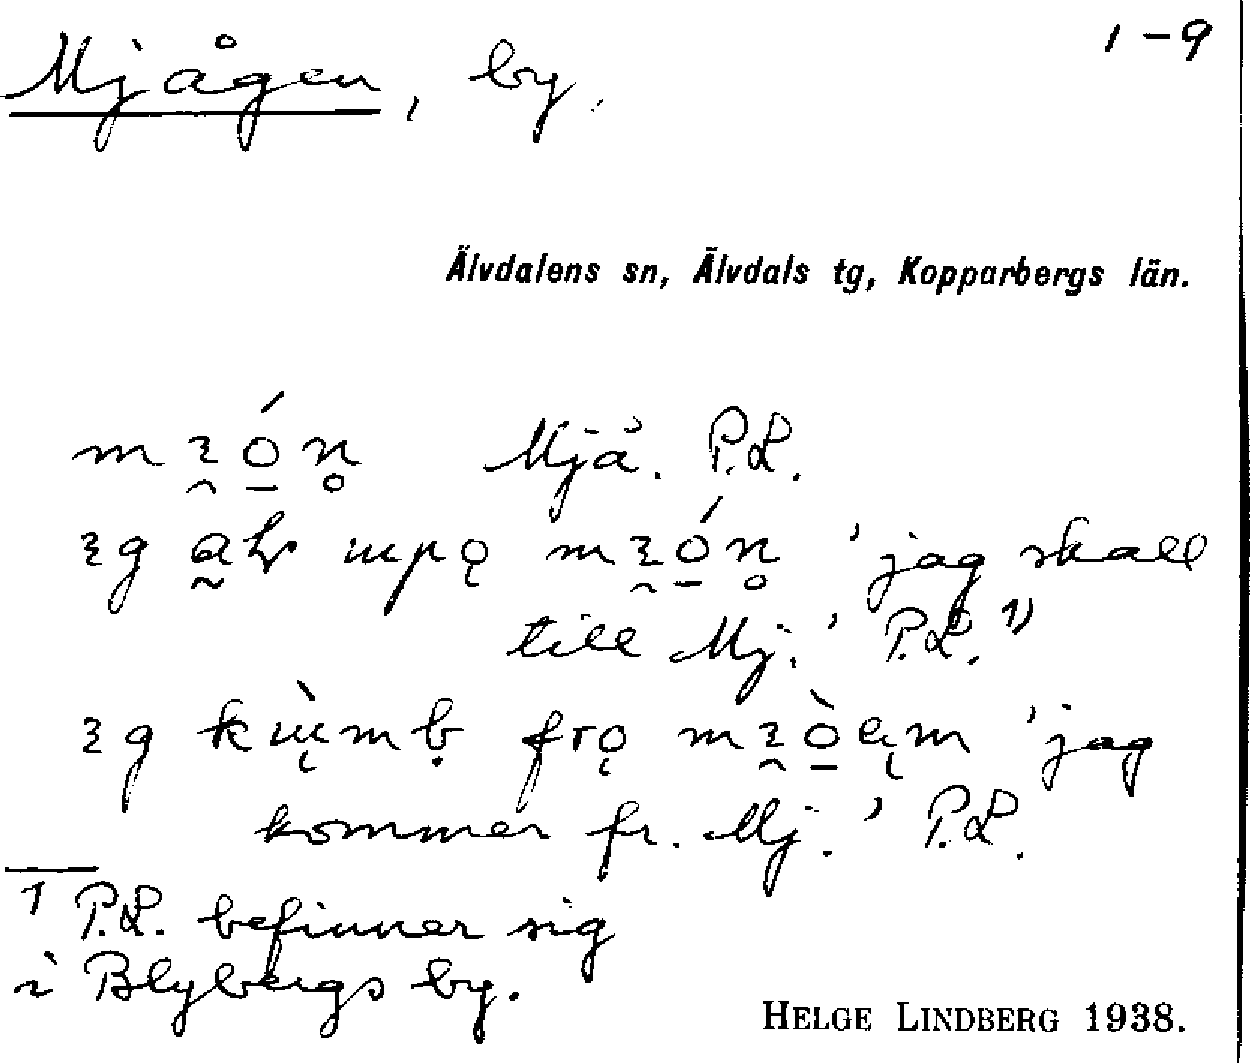 Mjågen, by. 1-9
Älvdalens sn, Älvdals tg, Kopparbergs län.
Mjå. P.L.
'jag skall
till Mj.' P.L. 1)
'jag
kommer fr. Mj.' P.L.
1 P.L. befinner sig
i Blybergs by.
HELGE LINDBERG 1938.